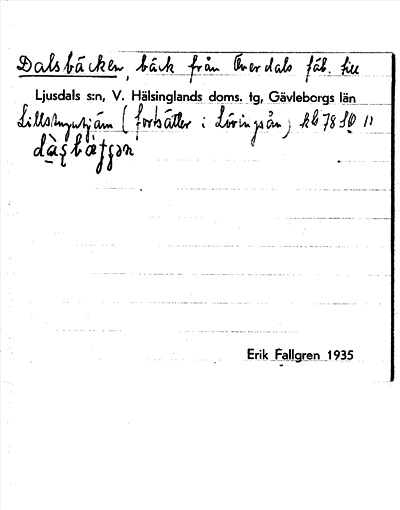 Dalsbäcken, bäck från Överdals fäb. till
Ljusdals s:n, V. Hälsinglands doms. tg, Gävleborgs län
(fortsätter i Löringsån) kb 78 SO 11
Erik Fallgren 1935